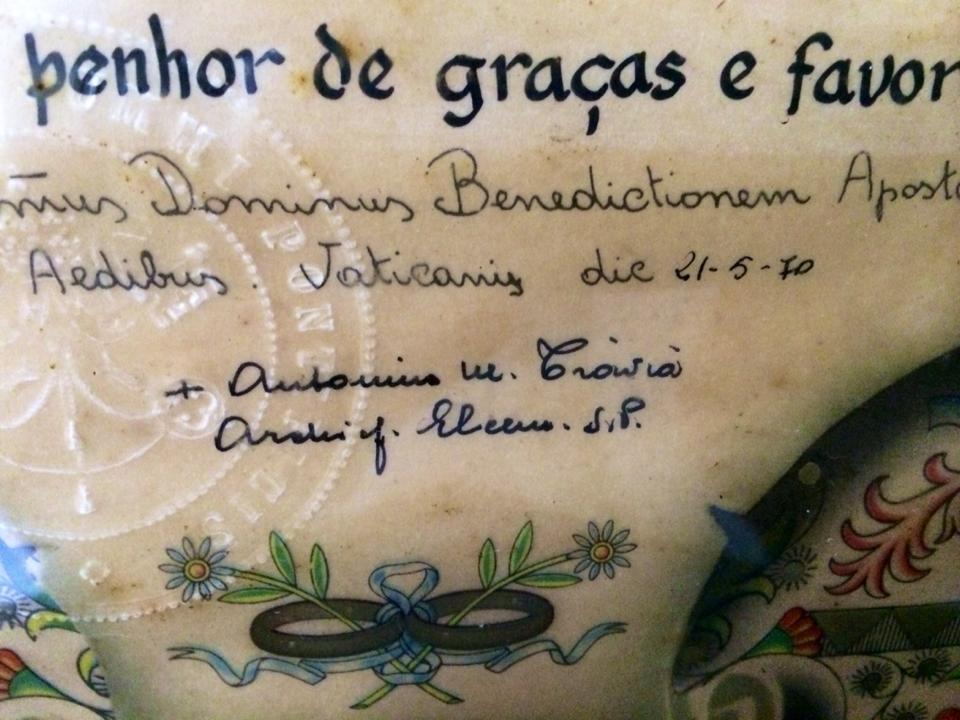 penhor de graças e favor
m̄us Dominus Benedictionem Aposto
Aedibus Vaticanis die 21-5-70
+ Antonius M. Travia
Archiep. Eleem. S.P.